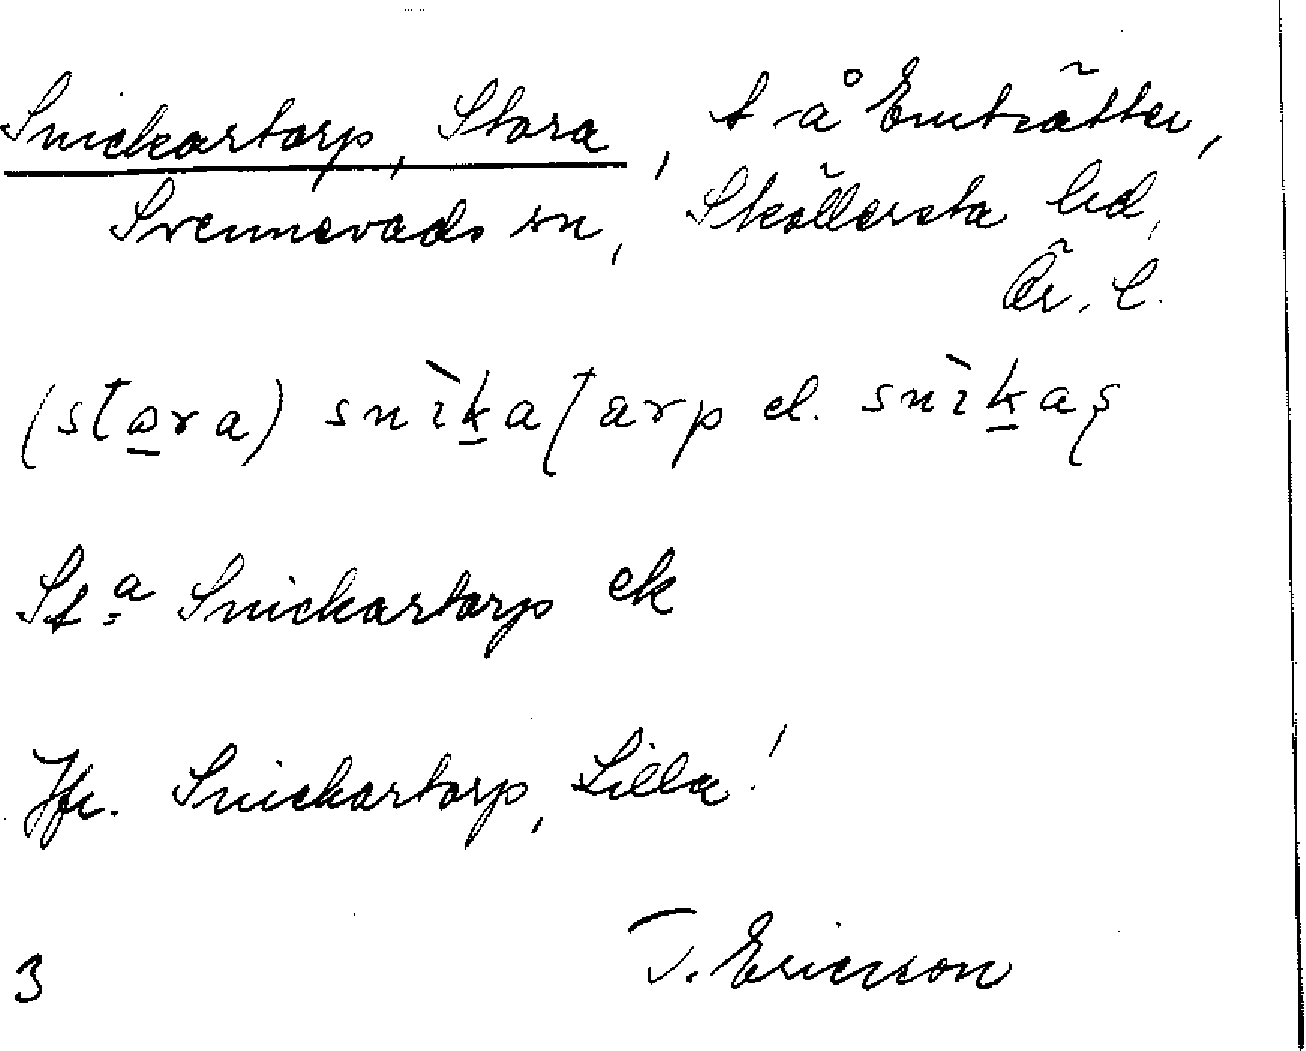 Snickartorp, Stora, t å Emträtten,
Svennevads sn, Sköllersta hd,
Ör. l.
(stora) snìkatarp el. snìkaş
St:a Snickartorp ek
Jfr. Snickartorp, Lilla!
3 T. Ericsson